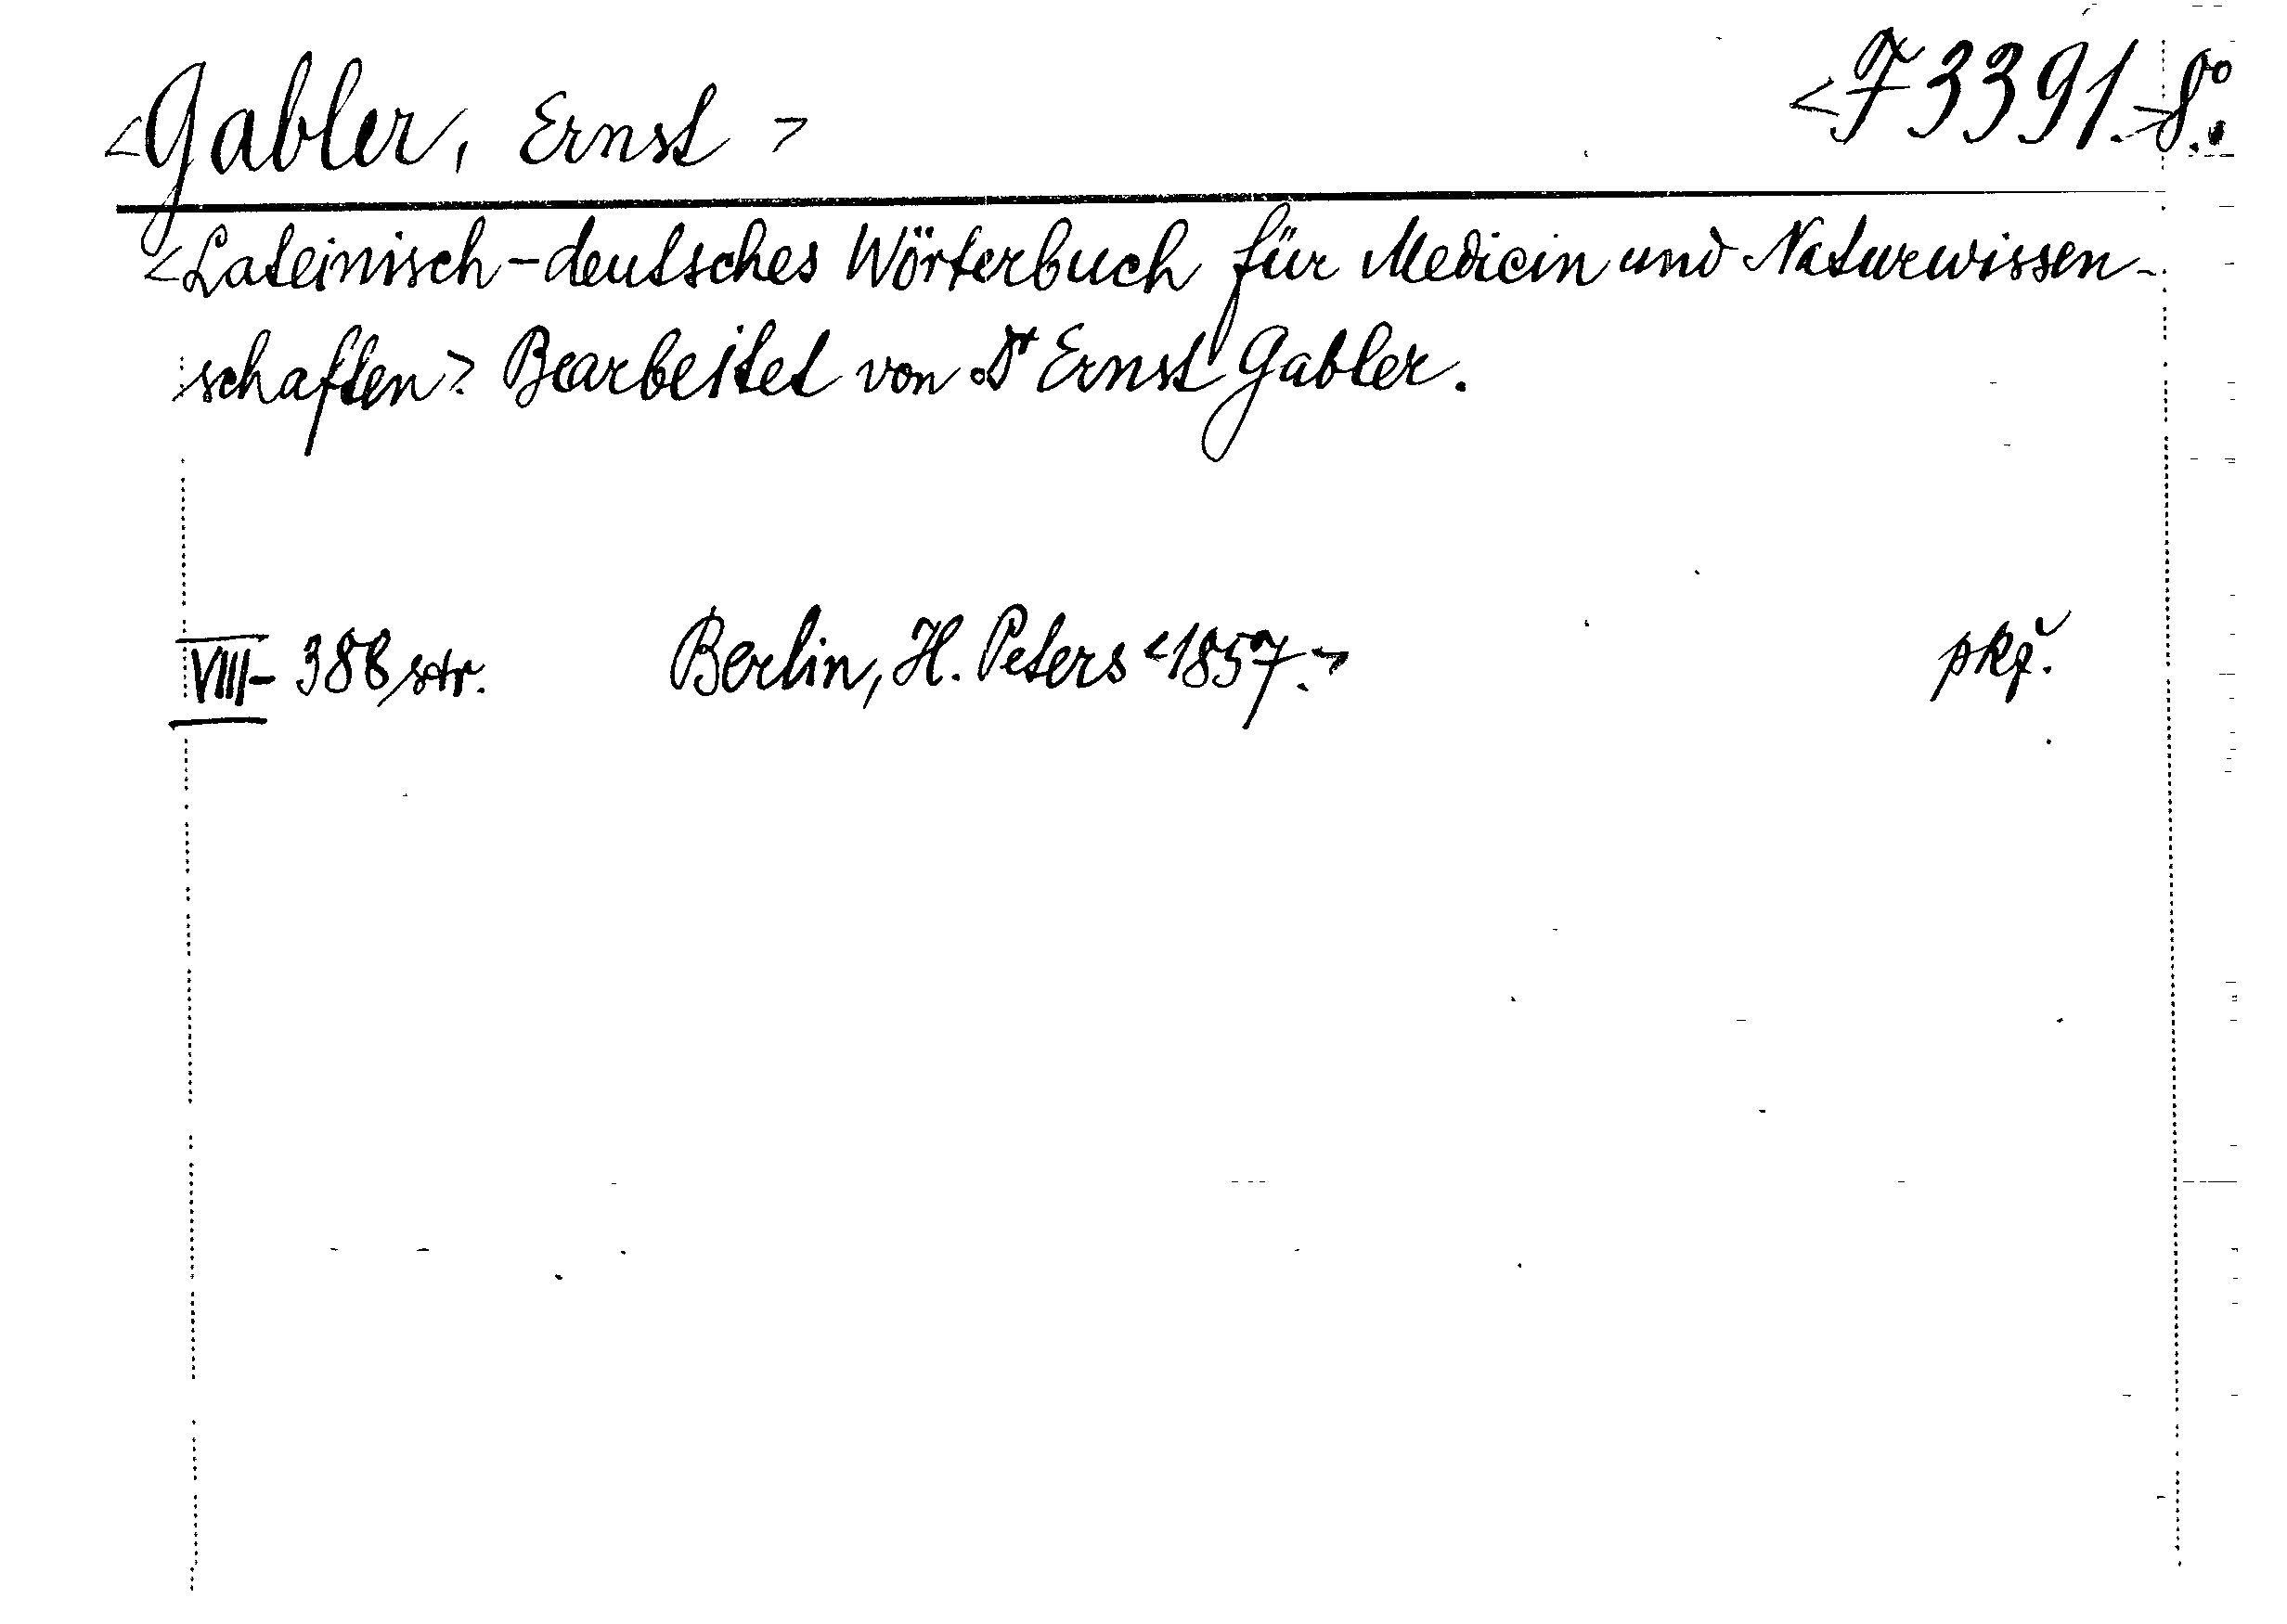 <Gabler, Ernst> <F 3391.> 8°.
<Lateinisch-deutsches Wörterbuch für Medicin und Naturwissen-
schaften> Bearbeitet von Dr Ernst Gabler.
VIII-388 str. Berlin, H. Peters <1857.> pkž.